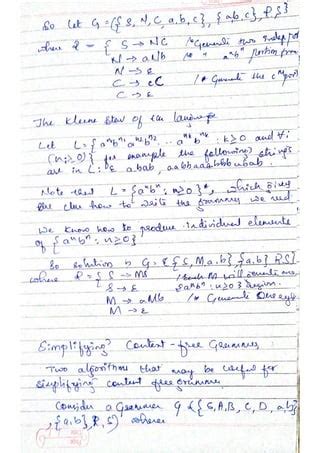 So Let G = ({S, N, C, a, b, c}, {a, b, c}, R, S}
where R = { S → NC /* Generate two indep
N → aNb /* " aⁿbⁿ portion from
N → ε
C → cC /* Generate the cᵐ
C → ε
The Kleene Star of a language
Let L = { aⁿ¹bⁿ¹ aⁿ²bⁿ² ... aⁿᵏbⁿᵏ : k≥0 and ∀i
(nᵢ≥0)} for example the following strings
are in L: ε, abab, aabbaaabbbabab.
Note that L = {aⁿbⁿ: n≥0}*, which gives
the clue how to write the grammar we need
We know how to produce individual elements
of {aⁿbⁿ: n≥0}
So solution is G = {{S, M, a, b}, {a, b} R, S}.
where R = { S → MS /* each M will generate one
S → ε {aⁿbⁿ: n≥0} region.
M → aMb /* Generate one
M → ε
Simplifying Context-free Grammars:
Two algorithms that may be useful for
simplifying context free grammars
Consider a Grammar G = {{S, A, B, C, D, a, b}
, {a, b}, R, S) where: